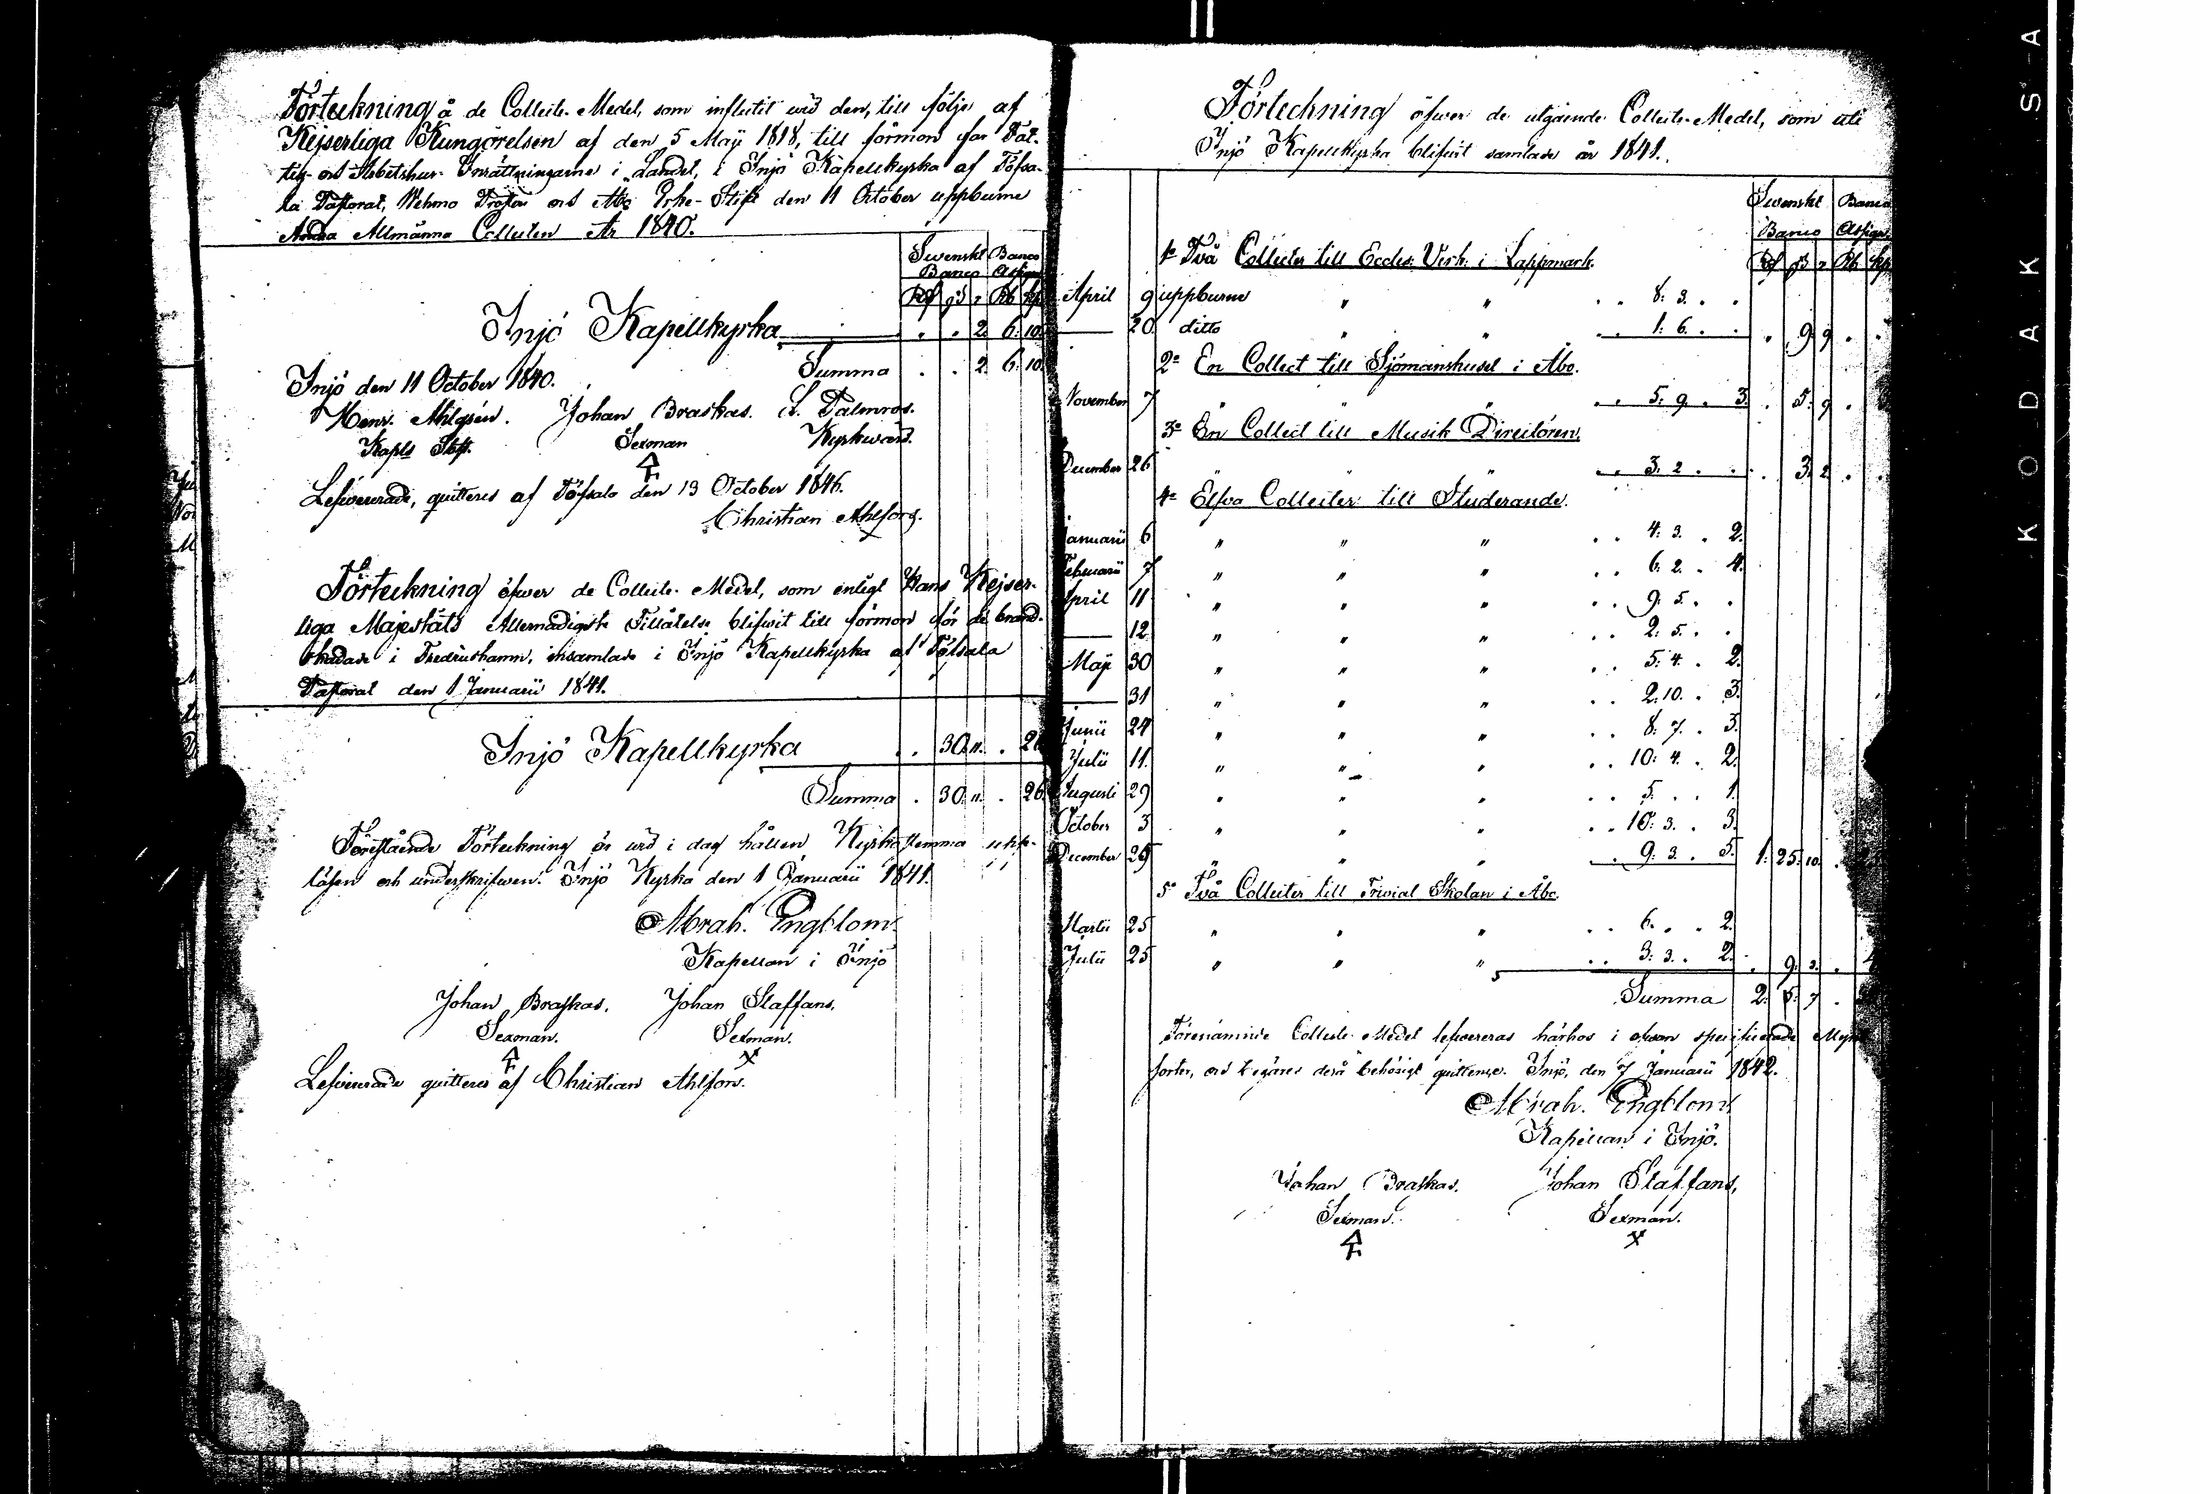 Förteckning å de Collecte-Medel, som influtit wid den, till följe af
Kejserliga Kungörelsen af den 5 Maji 1818, till förmon för Fat-
tig- och Arbetshus- Inrättningarne i Landet, i Injö Kapellkyrka af Töfsa-
la Pastorat, Wehmo Prosteri och Åbo Erke-Stift den 11 October uppburne
Andra Allmänna Collecten År 1840.
Swenskt Banco
Banco Assign.
Rd ß r Rb kp
Injö Kapellkyrka . . 2 6. 10.
Summa . . 2. 6. 10.
Injö den 11 October 1840.
Henr. Ahlgrén. Johan Braskas. L. Palmros.
Kapls Stft. Sexman Kyrkwärd.
Lefwererade, quitteres af Töfsala den 13 October 1846.
Christian Ahlforg.
Förteckning öfwer de Collecte-Medel, som enligt Hans Kejser-
liga Majestäts Allernådigste Tillåtelse blifwit till förmon för de brand-
skadade i Fredrikshamn, insamlade i Injö Kapellkyrka af Töfsala
Pastorat den 1 Januarii 1841.
Injö Kapellkyrka . 30. 11. . 26
Summa . 30. 11. . 26
Förestående Förteckning är wid i dag hållen Kyrkostemma upp-
läsen och underskrifwen. Injö Kyrka den 1 Januarii 1841.
Abrah. Engblom.
Kapellan i Injö
Johan Braskas. Johan Staffans.
Sexman. Sexman.
Lefwererade quitteres af Christian Ahlfors.
Förteckning öfwer de utgående Collecte-Medel, som uti
Injö Kapellkyrka blifwit samlade år 1841.
Swenskt Banco
Banco Assign.
Rd ß r Rb kp
1o Två Collecter till Eccles. Verk. i Lappmark.
April 9 uppburne " " . . 8. 3. . .
— 20 ditto " " . . 1. 6. . . . 9. 9 . .
2o En Collect till Sjömanshuset i Åbo.
November 7 " " " . . 5. 9. . 3. . 5. 9 .
3o En Collect till Musik Directören.
December 26 " " . . 3. 2. . . . 3. 2 . .
4o Elfva Collecter till Studerande.
Januarii 6 " " " . . 4. 3. . 2.
Februarii 7 " " " . . 6. 2. . 4.
April 11 " " " . . 9. 5. . .
— 12 " " " . . 2. 5. . .
Maji 30 " " " . . 5. 4. . 2.
— 31 " " " . . 2. 10. . 3.
Junii 24 " " " . . 8. 7. . 3.
Julii 11 " " " . . 10. 4. . 2.
Augusti 29 " " " . . 5. . . 1.
October 3 " " " . . 10. 3. . 3.
December 25 " " " . . 9. 3. . 5. 1. 25. 10. .
5o Två Collecter till Trivial Skolan i Åbo.
Martii 25 " " " . . 6. . . 2.
Julii 25 " " " . . 3. 3. . 2. . 9. 3. . 4
Summa 2. 5. 7 .
Förenämnde Collecte-Medel lefwereras härhos i ofwan specificerade Mynt-
sorter, och begäres derå behörigt quittence. Injö, den 7 Januarii 1842.
Abrah. Engblom
Kapellan i Injö.
Johan Braskas. Johan Staffans,
Sexman. Sexman.
KODAK S-A